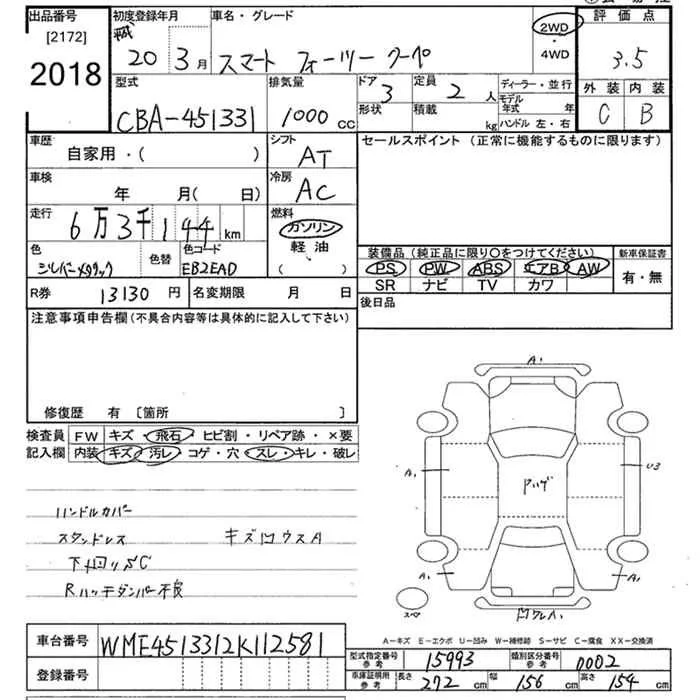 出品番号 初度登録年月 車名・グレード 2WD 評価点
[2172] 平成 20 3月 スマート フォーツー クーペ ・ 3.5
2018 4WD
型式 排気量 ドア 3 定員 2 人 ディーラー・並行 外装 内装
CBA-451331 1000 cc 形状 積載 kg モデル年式 年 C B
ハンドル 左・右
車歴 シフト セールスポイント (正常に機能するものに限ります)
自家用・( ) AT
車検 冷房
年 月(日) AC
走行 6万3千144km 燃料
ガソリン
色 色替 色コード 軽油 装備品(純正品に限り○をつけてください) 新車保証書
シルバーメタリック EB2EAD ( ) PS PW ABS エアB AW 有・無
SR ナビ TV カワ
R券 13130円 名変期限 月 日 後日品
注意事項申告欄(不具合内容等は具体的に記入して下さい)
修復歴 有 [箇所 ]
検査員 FW キズ・飛石・ヒビ割・リペア跡・×要
記入欄 内装 キズ・汚レ・コゲ・穴・スレ・キレ・破レ
ハンドルカバー
スタンドレス キズ凹ウスA
下廻りサC
Rハッチダンパー不良
A1
A1 U3
A1 A1
スペ
A-キズ E-エクボ U-凹み W-補修跡 S-サビ C-腐食 XX-交換済
車台番号 WME4513312K112581
登録番号
型式指定番号 参考 15993 類別区分番号 参考 0002
車庫証明用 参考 長さ 272 cm 幅 156 cm 高さ 154 cm